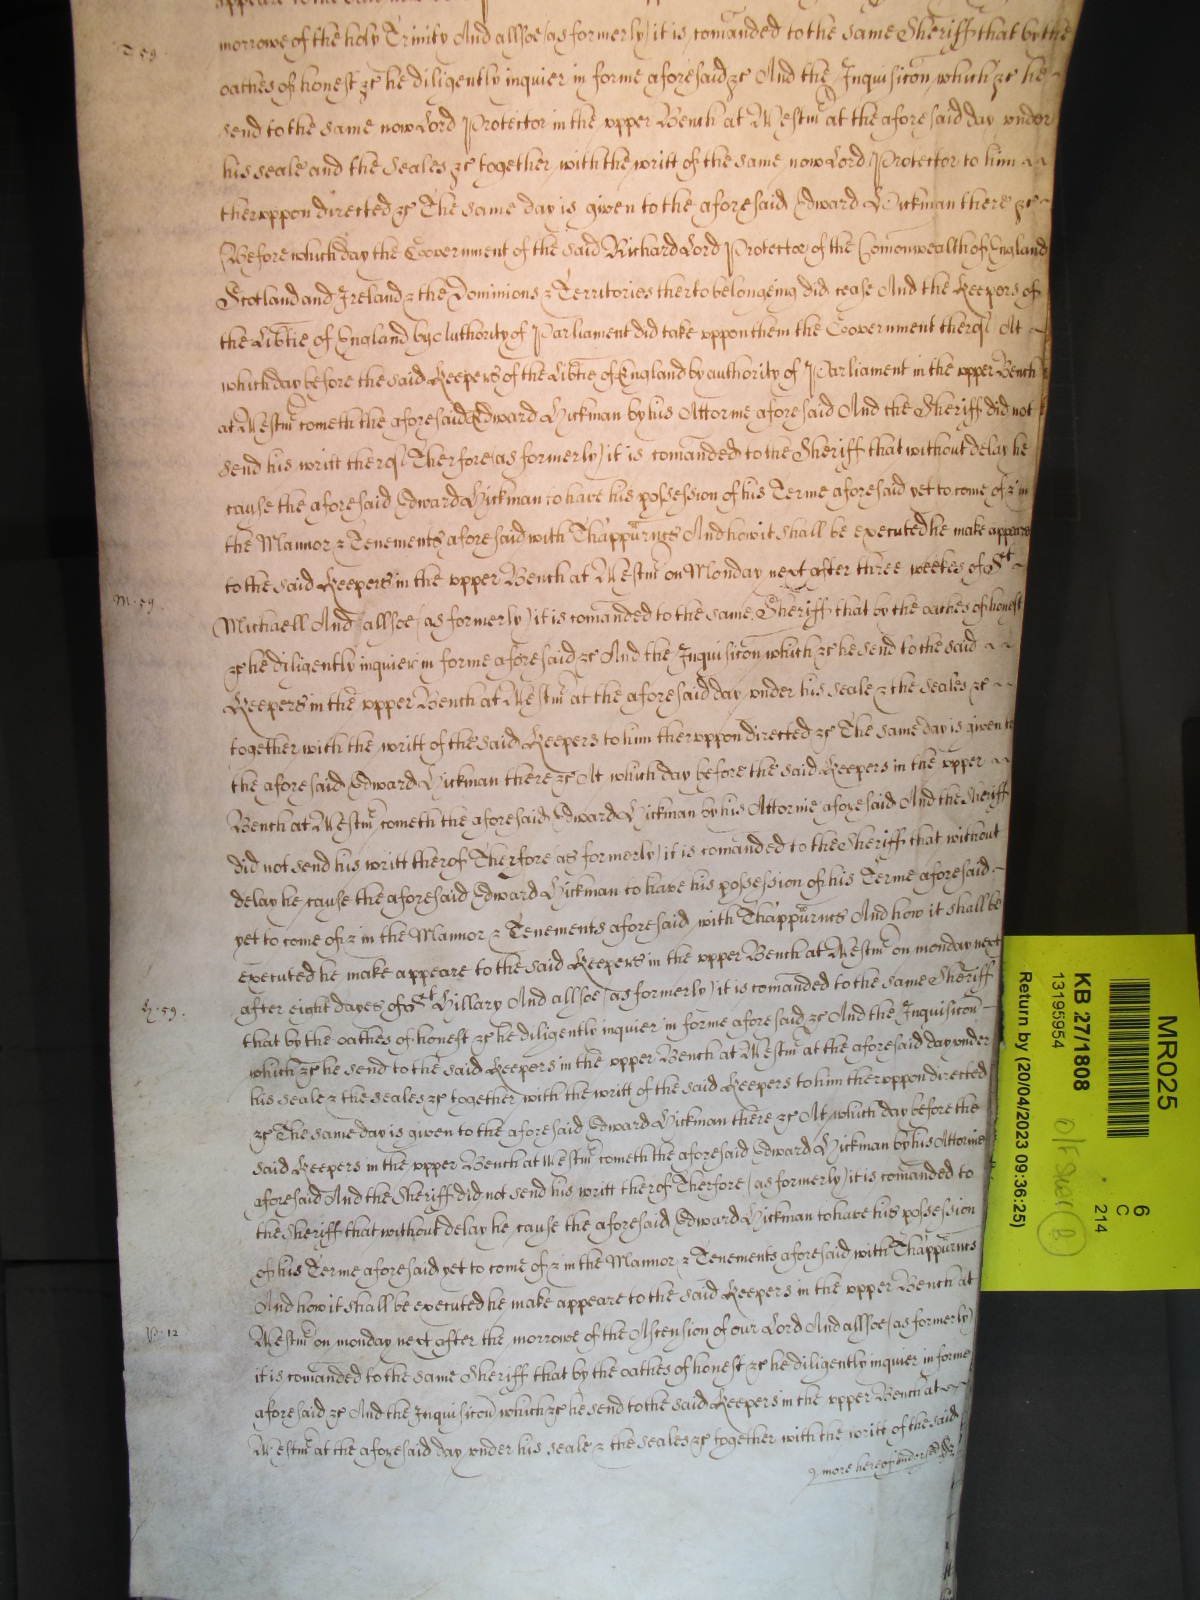 appeare to the
T. 59.
morrowe of the holy Trinity And allsoe (as formerly) it is comanded to the same Sheriff that by the
oathes of honest &c he diligently inquier in forme aforesaid &c And the Inquisicon which &c he
send to the same now Lord Protector in the vpper Bench at Westmr at the aforesaid day vnder
his seale and the Seales &c together with the writt of the same now Lord Protector to him
thervppon directed &c The same day is given to the aforesaid Edward Hickman there &c
Before which day the Government of the said Richard Lord Protector of the Comonwealth of England
Scotland and Ireland & the Dominions & Territories therto belongeing did cease And the Keepers of
the Libtie of England by Authority of Parliament did take vppon them the Government therof At
which day before the said Keepers of the Libtie of England by authority of Parliament in the vpper Bench
at Westmr cometh the aforesaid Edward Hickman by his Attorme aforesaid And the Sheriff did not
send his writt therof Therfore (as formerly) it is comanded to the Sheriff that without delay he
cause the aforesaid Edward Hickman to have his possession of his Terme aforesaid yet to come of & in
the Mannor & Tenements aforesaid with Thappurtncs And how it shall be executed he make appeare
to the said Keepers in the vpper Bench at Westmr on Monday next after three weekes of St
M. 59.
Michaell And allsoe (as formerly) it is comanded to the same Sheriff that by the oathes of honest
&c he diligently inquier in forme aforesaid &c And the Inquisicon which &c he send to the said
Keepers in the vpper Bench at Westmr at the aforesaid day vnder his seale & the seales &c
together with the writt of the said Keepers to him thervppon directed &c The same day is given to
the aforesaid Edward Hickman there &c At which day before the said Keepers in the vpper
Bench at Westmr cometh the aforesaid Edward Hickman by his Attornie aforesaid And the Sheriff
did not send his writt therof Therfore as formerly) it is comanded to the Sheriff that without
delay he cause the aforesaid Edward Hickman to have his possession of his Terme aforesaid
yet to come of & in the Mannor & Tenements aforesaid with Thappurtncs And how it shall be
executed he make appeare to the said Keepers in the vpper Bench at Westmr on monday next
H. 59.
after eight dayes of St Hillary And allsoe (as formerly) it is comanded to the same Sheriff
that by the oathes of honest &c he diligently inquier in forme aforesaid &c And the Inquisicon
which &c he send to the said Keepers in the vpper Bench at Westmr at the aforesaid day vnder
his seale & the seales &c together with the writt of the said Keepers to him thervppon directed
&c The same day is given to the aforesaid Edward Hickman there &c At which day before the
said Keepers in the vpper Bench at Westmr cometh the aforesaid Edward Hickman by his Attornie
aforesaid And the Sheriff did not send his writt therof Therfore (as formerly) it is comanded to
the Sheriff that without delay he cause the aforesaid Edward Hickman to have his possession
of his Terme aforesaid yet to come of & in the Mannor & Tenements aforesaid with Thappurtncs
And how it shall be executed he make appeare to the said Keepers in the vpper Bench at
Westmr on monday next after the morrowe of the Ascension of our Lord And allsoe (as formerly)
it is comanded to the same Sheriff that by the oathes of honest &c he diligently inquier in forme
aforesaid &c And the Inquisicon which &c he send to the said Keepers in the vpper Bench at
Westmr at the aforesaid day vnder his seale & the seales &c together with the writt of the said
more hereof indorsed
MR025
6
C
214
KB 27/1808
13195954
Return by (20/04/2023 09:36:25)